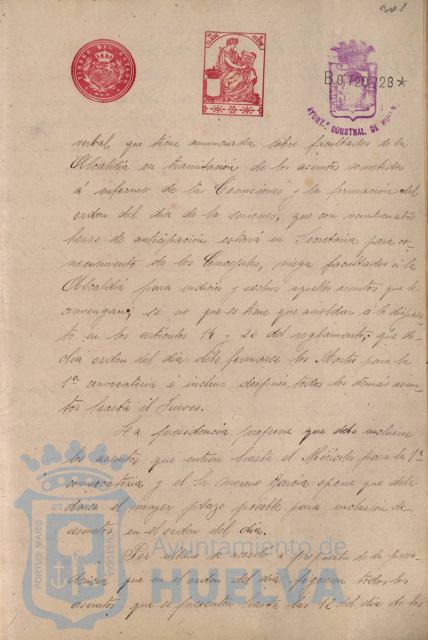 201
TIMBRE DEL ESTADO
B.0.720.728*
AYUNTº CONSTNAL DE HUELVA
verbal, que tiene anunciada sobre facultades de la
Alcaldía en tramitación de los asuntos sometidos
á informe de las Comisiones y la formación del
orden del día de la sesiones, que con veinticuatro
horas de anticipación estará en Secretaría para co-
nocimiento de los Concejales, niega facultades á la
Alcaldía para incluir y excluir aquellos asuntos que le
convengan, sí no que se tiene que amoldar á lo dispues
to en los artículos 14 y 20 del reglamento, que di-
cho orden del día debe formarse los Martes para la
1ª convocatoria e incluir después todos los demás asun
tos hasta el Jueves.
La presidencia propone que debe incluirse
los asuntos que entren hasta el Miércoles para la 1ª
convocatoria, y el Sr. Moreno García opina que debe
darse el mayor plazo posible para inclusión de
asuntos en el orden del día.
Por último se acordó á propuesta de la presi-
dencia que en el orden del día figuren todos los
asuntos que se presenten hasta las 12 del día de los
PORTUS MARIS ET TERRAE CUSTODIA
Ayuntamiento de
HUELVA